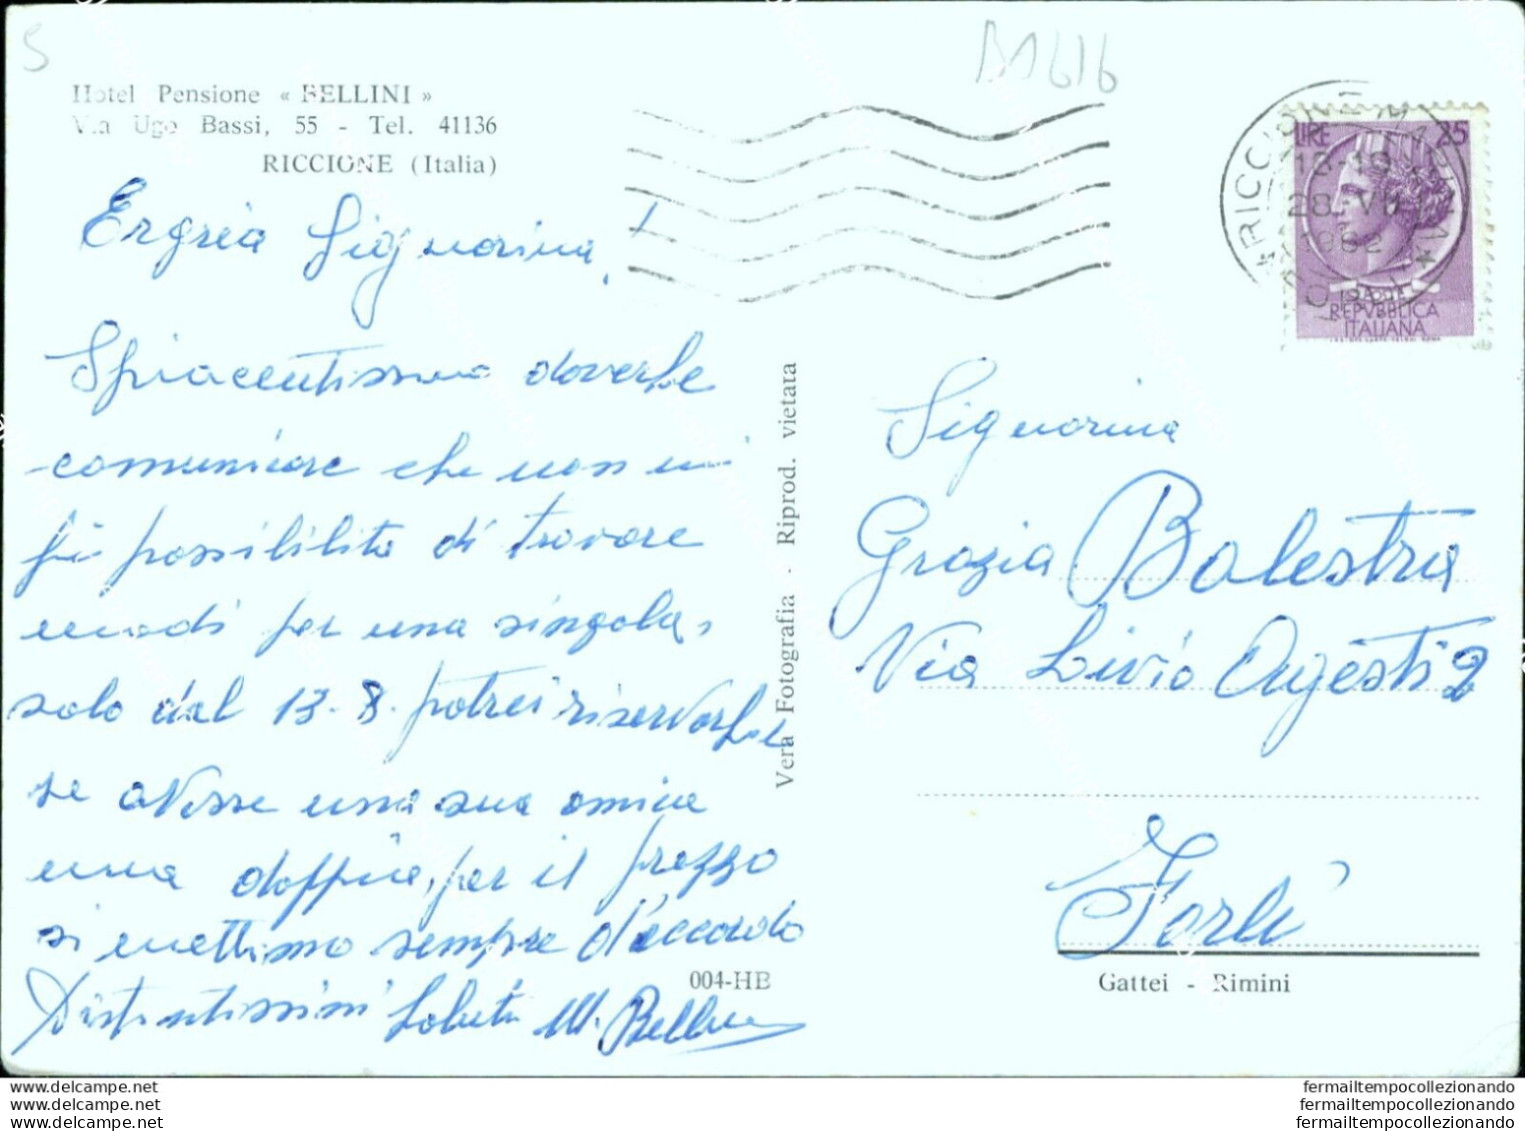 S
B1616
Hotel Pensione « BELLINI »
Via Ugo Bassi, 55 - Tel. 41136
RICCIONE (Italia)
Egregia Signorina!
Spiacentissima doverle
comunicare che non mi
fu possibilita di trovare
modi per una singola,
solo dal 13-8. potrei riservarle
se avesse una sua amica
una doppia, per il prezzo
si mettiamo sempre d'accordo
Distintissimi Saluti M. Bellini
004-HB
Vera Fotografia - Riprod. vietata
RICCIONE MARINA
18-19
28-VII
1962
LIRE 25
REPVBBLICA
ITALIANA
Signorina
Grazia Balestra
Via Livio Agresti 2
Forlì
Gattei - Rimini
www.delcampe.net
www.delcampe.net
www.delcampe.net
fermailtempocollezionando
fermailtempocollezionando
fermailtempocollezionando